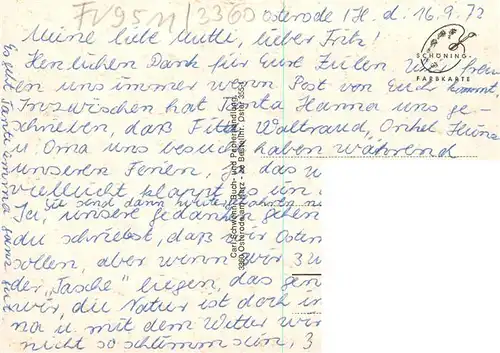 FV9511/3360
Osterode / H. d. 16.9.72
Meine liebe Mutti, lieber Fritz!
Herzlichen Dank für Eure Zeilen. Wir freu-
en uns immer wenn Post von Euch kommt.
Inzwischen hat Tante Hanna uns ge-
schrieben, daß Waltraud, Onkel Heinz
u Oma uns besucht haben während
unseren Ferien, das
vielleicht klappt es
Sie sind dann weiter
Ja, unsere Gedanken gehen
du schriebst, daß wir Ostern
sollen, aber wenn wir 3 W
der "Tasche" liegen, das gen
wir, die Natur ist doch i
na u. mit dem Wetter wir
nicht so schlimm sein, 3
SCHÖNING
FARBKARTE
Carl Schwenn, Buch- und Papierhandlung
3360 Osterode am Harz
Es grüßt Tante Emma ganz